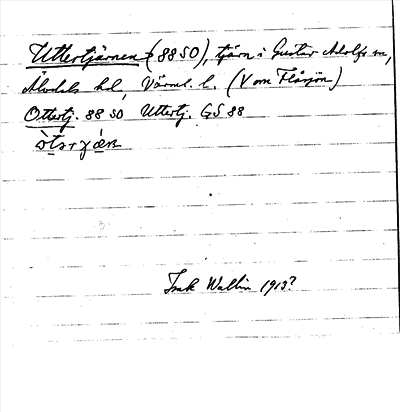 Uttertjärnen (8850), tjärn i Gustav Adolfs sn,
Älvdals hd, Värml. l. (V om Flåsjön)
Ottertj. 8850 Uttertj. GS 88
òtərɟæɳ
Isak Wallin 1913?